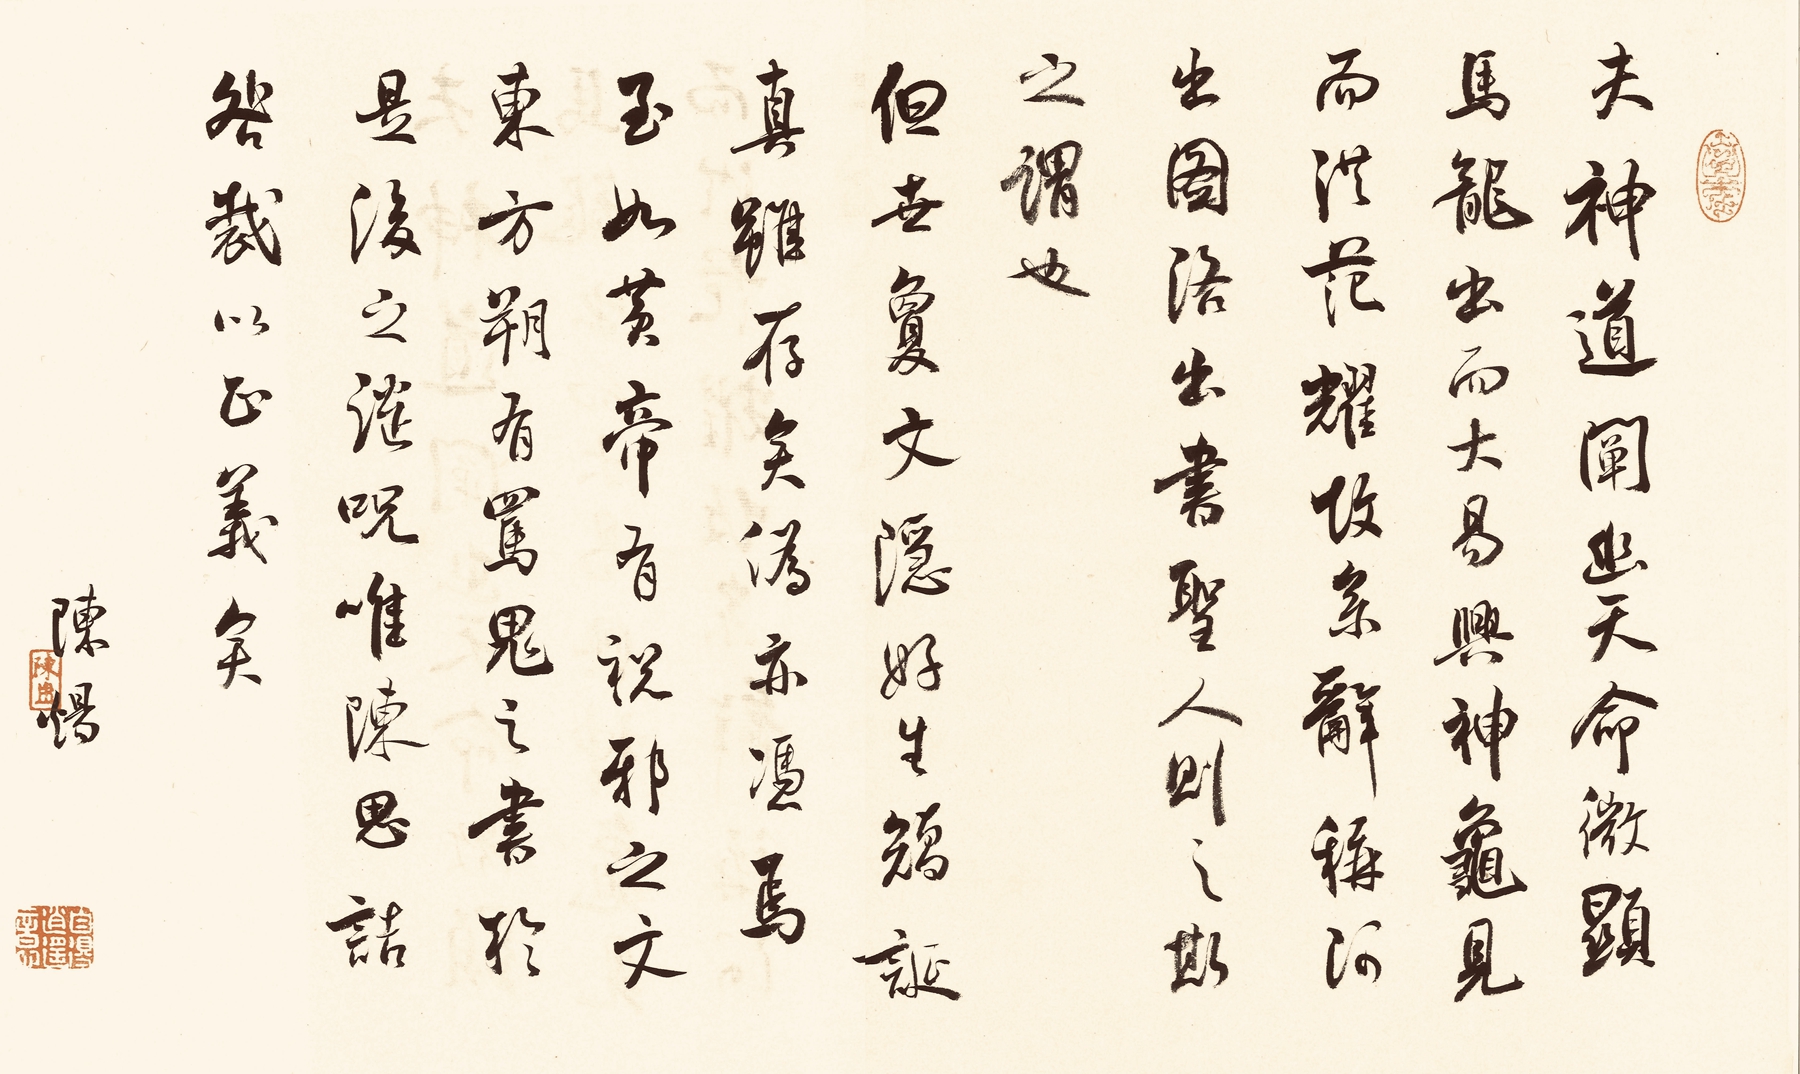 夫神道闡幽天命微顯
馬龍出而大易興神龜見
而洪范耀故系辭稱河
出圖洛出書聖人則之斯
之謂也
但世夐文隱好生矯誕
真雖存矣偽亦憑焉
至如黃帝有祝邪之文
東方朔有罵鬼之書於
是後之譴呪唯陳思詰
咎裁以正義矣
陳煬